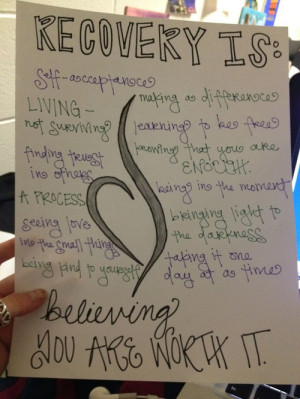 RECOVERY IS:
self-acceptance
LIVING -
not surviving
finding trust
in others
A PROCESS
seeing love
in the small things
being kind to yourself
making a difference
learning to be free
knowing that you are
ENOUGH.
being in the moment
bringing light to
the darkness
taking it one
day at a time
believing
YOU ARE WORTH IT.